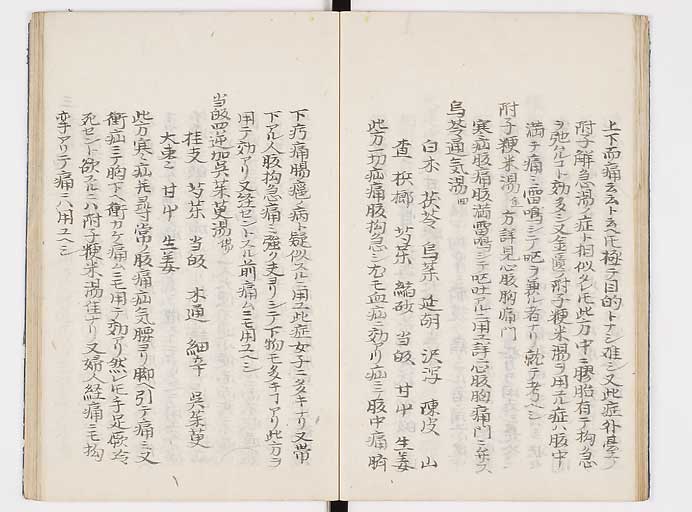 上下而痛云云ト云ヘ氏極テ目的トナシ难シ又此症
附子解急湯ノ症ト相似タレ氏此方中ニ膠飴有テ拘急
ヲ弛ルコト効多シ又金匱ノ附子粳米湯ヲ用ユル症ハ腹中
満テ痛ミ雷鳴シテ呕ヲ兼ル者ナリ就テ考ヘシ
附子粳米湯 方詳見心腹胸痛門
寒疝腹痛腹満雷鳴シテ呕吐アルニ用ユ詳ニ心腹胸痛門ニ弁ス
烏苓通气湯
白木 茯苓 烏薬 延胡 沢瀉 陳皮 山
査 梹榔 芍薬 縮砂 当皈 甘中 生姜
此方一切疝痛腹拘急シ尤モ血症ニ効アリ疝ニテ腹中痛臍
下疞痛腸癰ノ病ト疑似スルニ用ユ此症女子ニ多キナリ又帯
下アル人腹拘急痛ミ強ク支ヨリシテ下物モ多キコアリ此方ヲ
用テ効アリ又経セントスル前痛ムニモ用ユヘシ
当皈四逆加呉茱萸湯
桂支 芍薬 当皈 木通 細辛 呉茱萸
大棗 甘中 生姜
此方寒疝氏尋常ノ腹痛疝气腰ヨリ脚ヘ引テ痛ミ又
衝疝ニテ胸下ヘ衝カケ痛ムニモ用テ効アリ然レ氏手足厥冷
死セント欲スルニハ附子粳米湯佳ナリ又婦人経痛ニモ拘
孿アリテ痛ニハ用ユヘシ